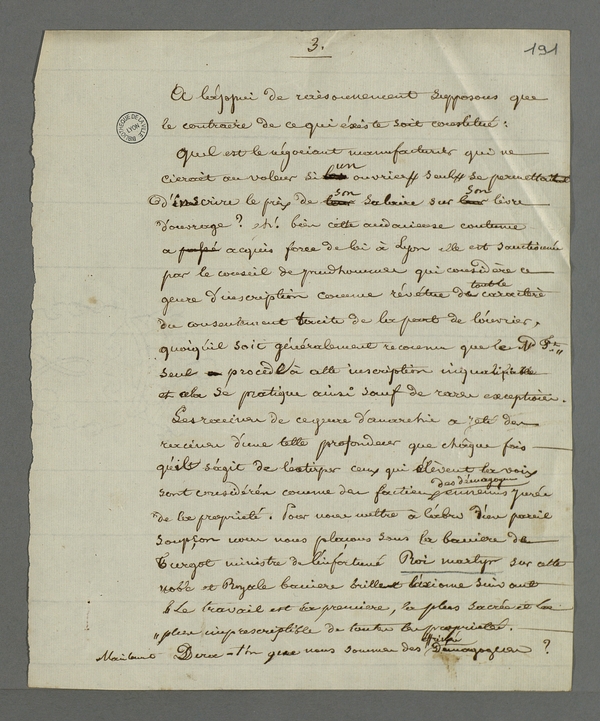 3.
191
BIBLIOTHEQUE DE LA VILLE LYON
A l'appui de raisonnement supposons que
le contraire de ce qui éxiste soit constitué :
Quel est le négociant manufacturier qui ne
cierait au voleur si un ouvrier seul se permettait
d'inscrire le prix de son salaire sur son livre
d'ouvrage ? eh! bien cette audacieuse coutume
a passé acquis force de loi à Lyon elle est sanctionnée
par le conseil de prudhommes qui considère ce
genre d'inscription comme révétue de tout le caractère
du consentement tacite de la part de l'ouvrier,
quoiqu'il soit généralement reconnu que le
seul procède à cette inscription inqualifiable
et cela se pratique ainsi sauf de rares exceptions.
Les racines de ce genre d'anarchie a jeté des
racines d'une telle profondeur que chaque fois
qu'il s'agit de l'extirper ceux qui élèvent la voix
sont considérés comme des factieux des démagogues ennemis jurés
de la propriété. Pour nous mettre à l'abri d'un pareil
soupçon nous nous plaçons sous la baniere de
Turgot ministre de l'infortuné Roi martyr sur cette
noble et Royale baniere brille l'axiome suivant
Le travail est la premiere, la plus sacrée et la
" plus imprescriptible de toutes les propriétés.
Maintenant Dira-t-on que nous sommes des Démagogues ?